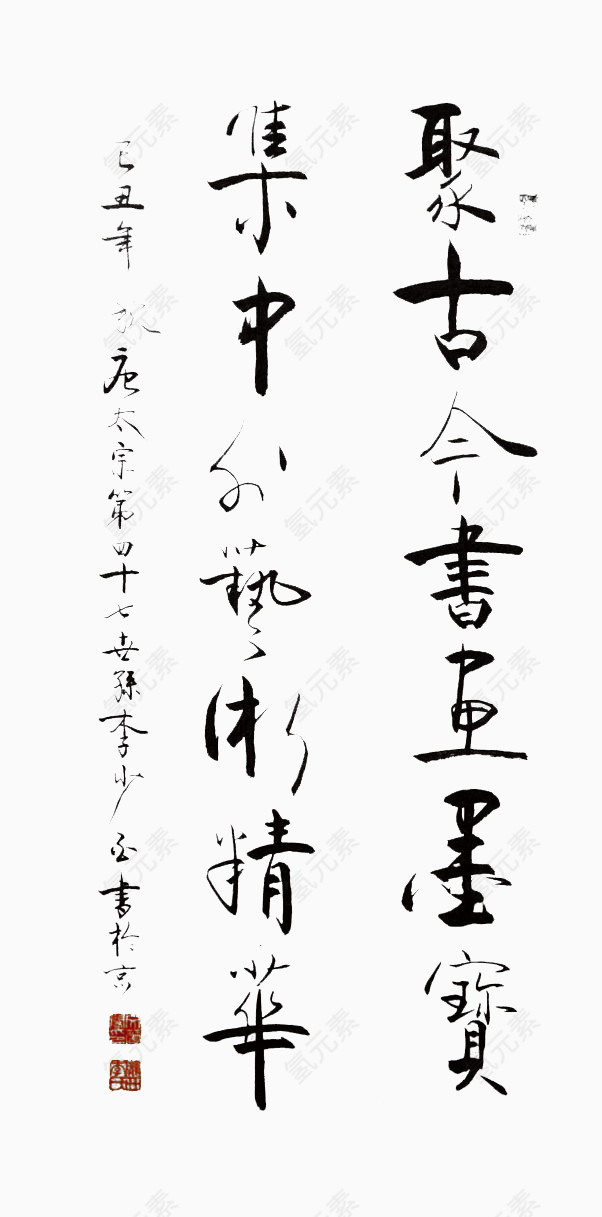 聚古今書畫墨寶
集中外藝術精華
己丑年 唐太宗第四十七世孫李少 書於京
氢元素